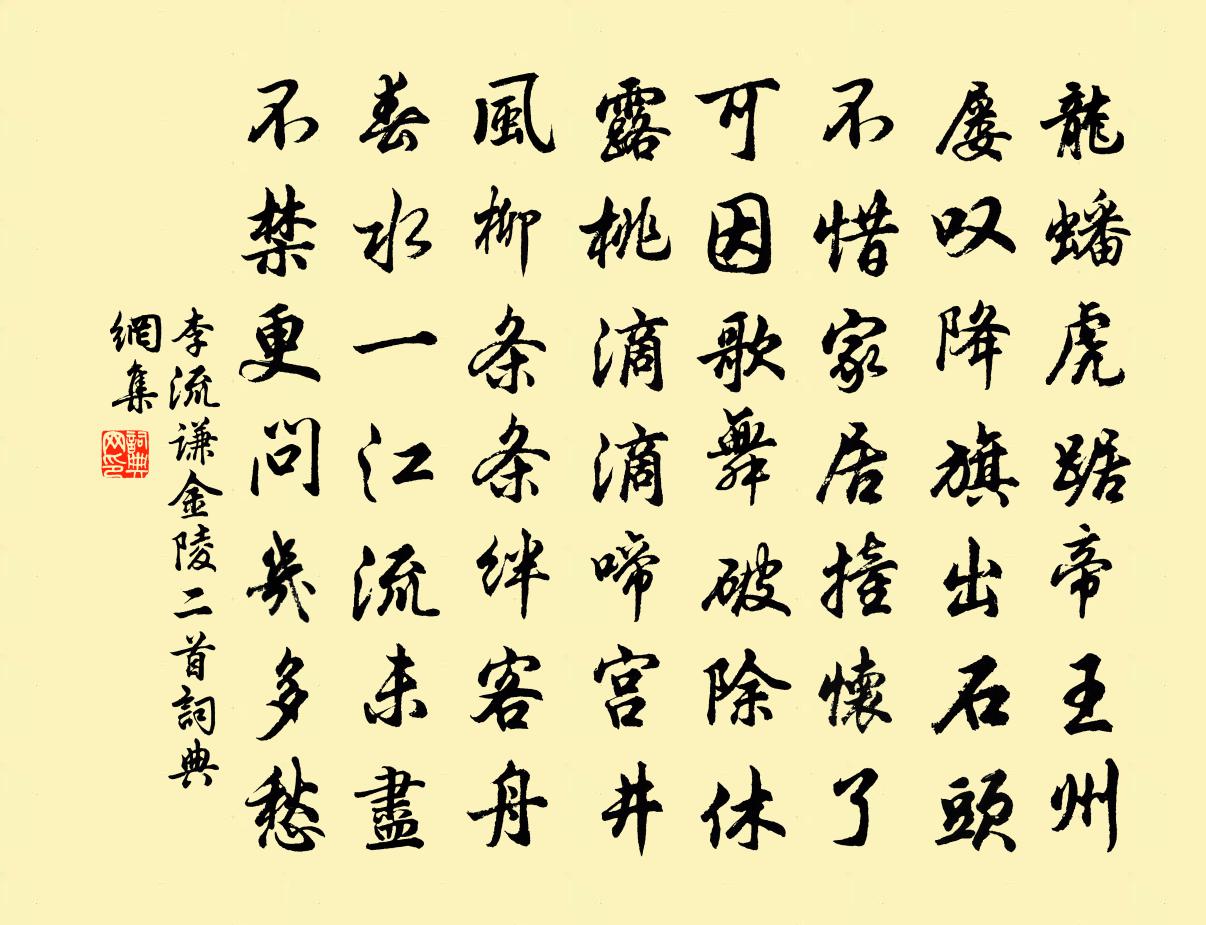 龍蟠虎踞帝王州
屡叹降旗出石頭
不惜家居撞懐了
可因歌舞破除休
露桃滴滴啼宫井
風柳条条絆客舟
春水一江流未盡
不禁更问幾多愁
李流谦金陵二首詞典
網集
詞典網印